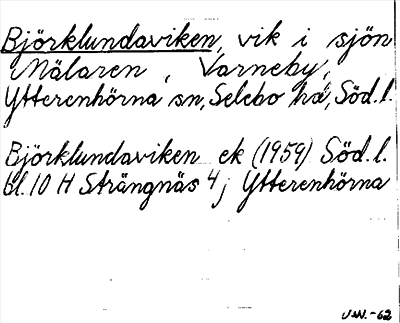 Björklundaviken, vik i sjön
Mälaren, Varneby,
Ytterenhörna sn, Selebo hd, Söd.l.
Björklundaviken ek (1959) Söd.l.
bl. 10 H Strängnäs 4; Ytterenhörna
-62